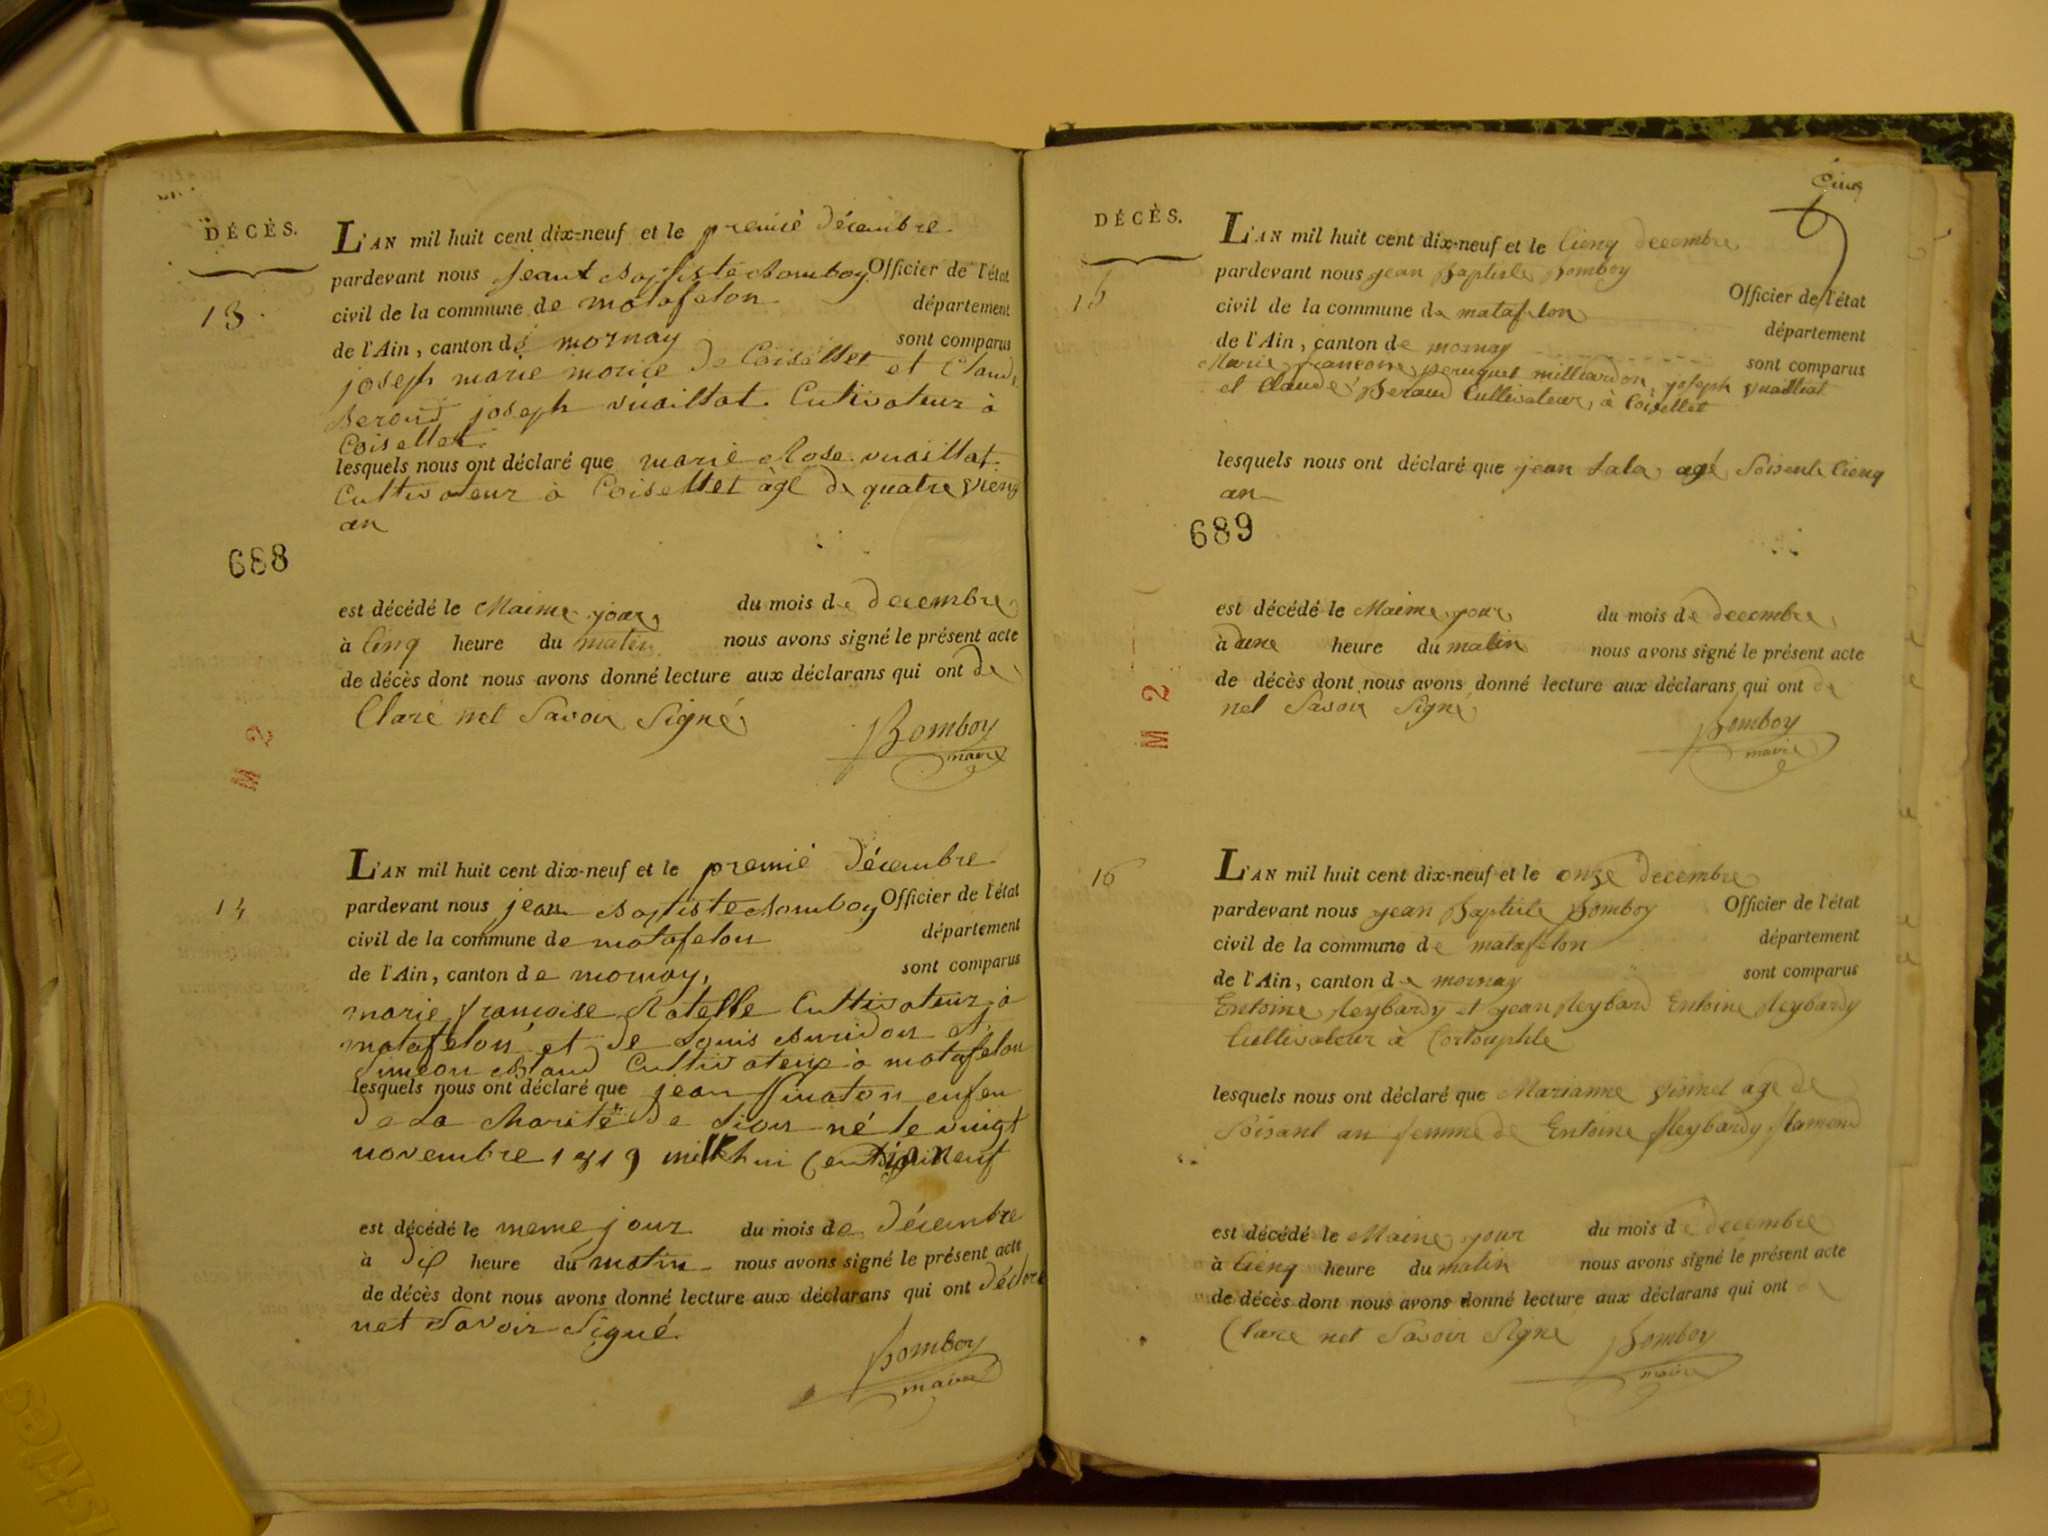 DÉCÈS.
L'AN mil huit cent dix-neuf et le premié décembre
pardevant nous jeant Baptiste Bomboy Officier de l'état
13.
civil de la commune de matafelon département
de l'Ain, canton de mornay sont comparus
joseph marie de Coisellet et Claude
joseph vuaillat Cutivateur à
Coisellet.
lesquels nous ont déclaré que marie Rose vuaillat.
Cultivateur à Coisellet âgé de quatre vieng
an
688
est décédé le Maime jour, du mois de decembre
à Cinq heure du matin nous avons signé le présent acte
de décès dont nous avons donné lecture aux déclarans qui ont de
Claré net Savoir Signé
M 2
Bomboy
maire
L'AN mil huit cent dix-neuf et le premié décembre
14
pardevant nous jean Baptiste Bomboy Officier de l'état
civil de la commune de matafelon département
de l'Ain, canton de mornay, sont comparus
marie françoise Cultivateur à
matafelon et de Louis et
Simeon Cultivateur à matafelon
lesquels nous ont déclaré que jean enfen
de La Charité de né le vingt
novembre 1819
est décédé le meme jour du mois de décembre
à dix heure du matin nous avons signé le présent acte
de décès dont nous avons donné lecture aux déclarans qui ont déclaré
net Savoir Signé
Bomboy
maire
Cinq
DÉCÈS.
L'AN mil huit cent dix-neuf et le Cienq decembre
pardevant nous jean Baptiste Bomboy
15
civil de la commune de matafelon Officier de l'état
département
de l'Ain, canton de mornay sont comparus
Marie francoise milliardon, joseph vuaillat
et Claude Beraud Cultivateur, à Coisellet
lesquels nous ont déclaré que jean Lala agé Soisente Cienq
an
689
est décédé le Maime jour du mois de decembre
à dune heure du matin nous avons signé le présent acte
de décès dont nous avons donné lecture aux déclarans qui ont de
net Savoir Signé
M 2
Bomboy
maire
16
L'AN mil huit cent dix-neuf et le onze decembre
pardevant nous jean Baptiste Bomboy Officier de l'état
civil de la commune de matafelon département
de l'Ain, canton de mornay sont comparus
Entoine Reybardy et jean Reybard Entoine Reybardy
Cultivateur à
lesquels nous ont déclaré que Marianne age de
Soisant an femme de Entoine Reybardy
est décédé le Maime jour du mois de decembre
à Cienq heure du matin nous avons signé le présent acte
de décès dont nous avons donné lecture aux déclarans qui ont de
Clare net Savoir Signé
Bomboy
maire